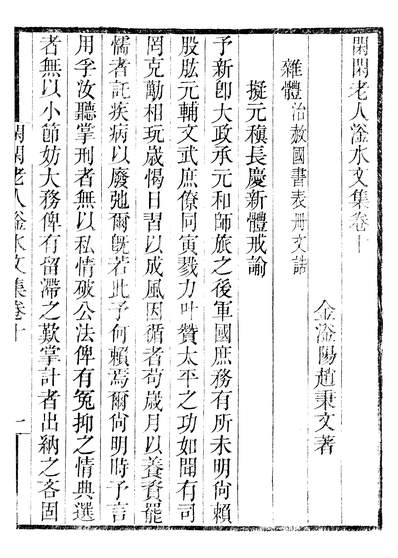 閑閑老人滏水文集卷十
金滏陽趙秉文著
雜體治赦國書表冊文誥
擬元稹長慶新體戒諭
予新卽大政承元和師旅之後軍國庶務有所未明尙賴
股肱元輔文武庶僚同寅戮力叶贊太平之功如聞有司
罔克勵相玩歲愒日習以成風因循者苟歲月以養資罷
懦者託疾病以廢弛爾旣若此予何賴焉爾尙明時予言
用孚汝聽掌刑者無以私情破公法俾有冤抑之情典選
者無以小節妨大務俾有留滯之歎掌計者出納之吝固
閑閑老人滏水文集卷十
一